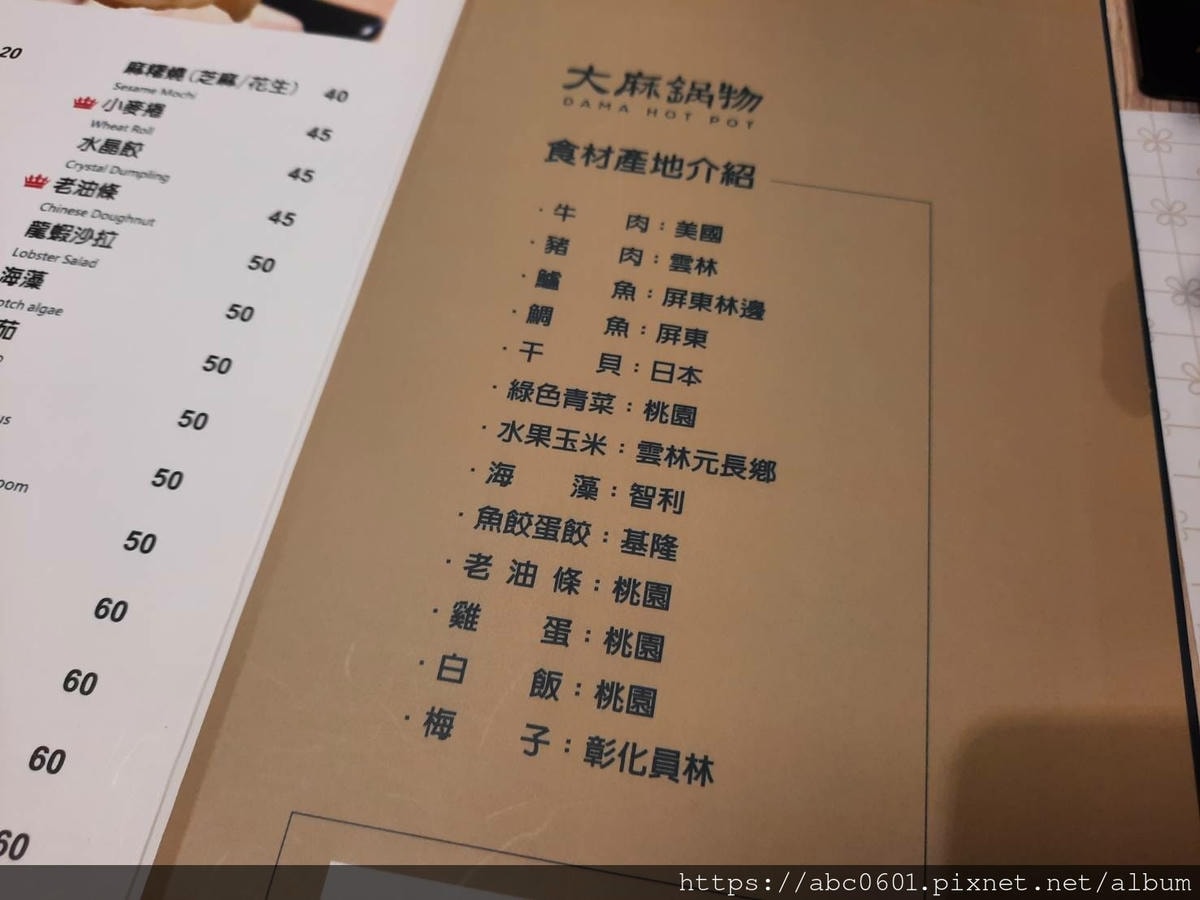 20
麻糬燒(芝麻/花生) 40
Sesame Mochi
小麥捲 45
Wheat Roll
水晶餃 45
Crystal Dumpling
老油條 45
Chinese Doughnut
龍蝦沙拉 50
Lobster Salad
海藻 50
otch algae
茄 50
50
us
50
oom
50
60
60
60
60
大麻鍋物
DAMA HOT POT
食材產地介紹
·牛肉:美國
·豬肉:雲林
·鱸魚:屏東林邊
·鯛魚:屏東
·干貝:日本
·綠色青菜:桃園
·水果玉米:雲林元長鄉
·海藻:智利
·魚餃蛋餃:基隆
·老油條:桃園
·雞蛋:桃園
·白飯:桃園
·梅子:彰化員林
https://abc0601.pixnet.net/album